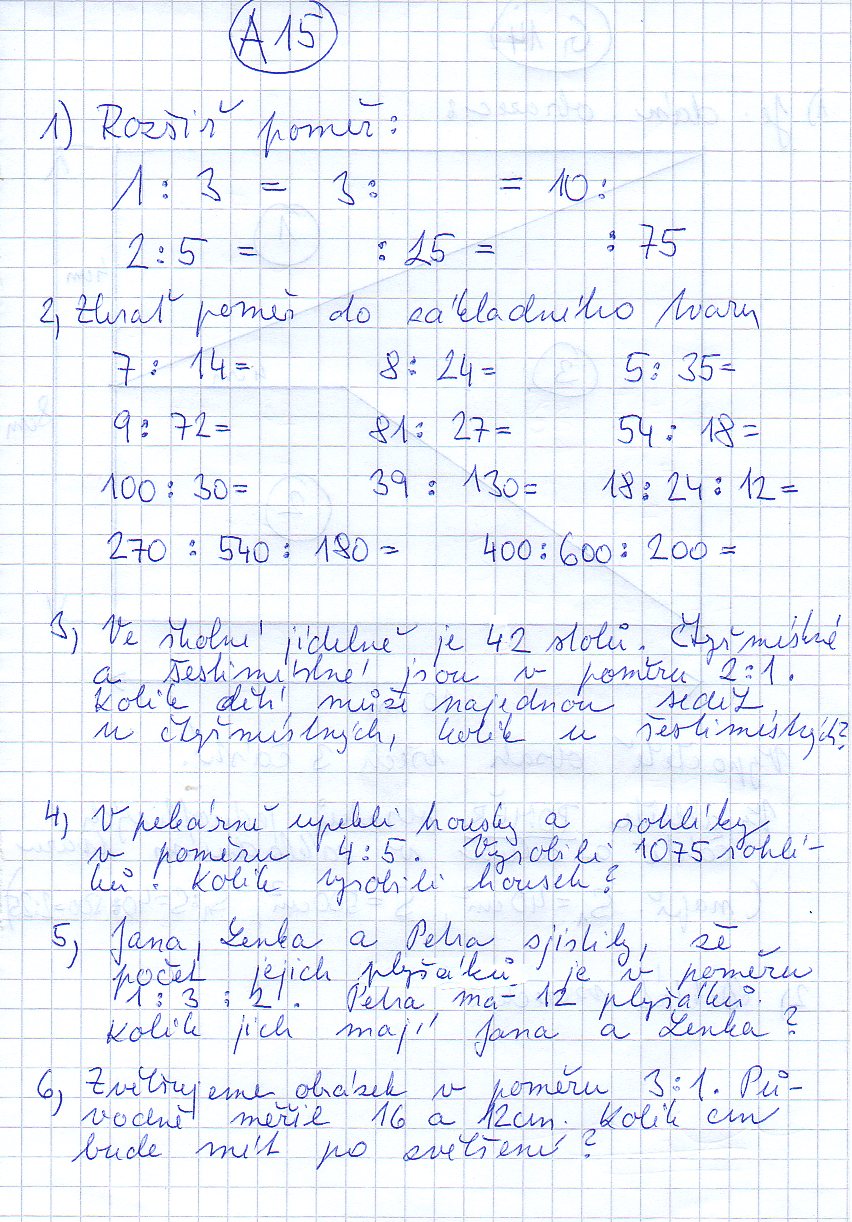 A 15
1) Rozšiř poměr:
1 : 3 = 3 : = 10 :
2 : 5 = : 25 = : 75
2, Zkrať poměr do základního tvaru
7 : 14 = 8 : 24 = 5 : 35 =
9 : 72 = 81 : 27 = 54 : 18 =
100 : 30 = 39 : 130 = 18 : 24 : 12 =
270 : 540 : 180 = 400 : 600 : 200 =
3, Ve školní jídelně je 42 stolů. Čtyřmístné
a šestimístné jsou v poměru 2:1.
Kolik dětí může najednou sedět
u čtyřmístných, kolik u šestimístných?
4, V pekárně upekli housky a rohlíky
v poměru 4:5. Vyrobili 1075 rohlí-
ků. Kolik vyrobili housek?
5, Jana, Lenka a Petra zjistily, že
počet jejich plyšáků je v poměru
1 : 3 : 2. Petra má 12 plyšáků.
Kolik jich mají Jana a Lenka?
6, Zvětšujeme obrázek v poměru 3:1. Pů-
vodně měřil 16 a 12cm. Kolik cm
bude mít po zvětšení?